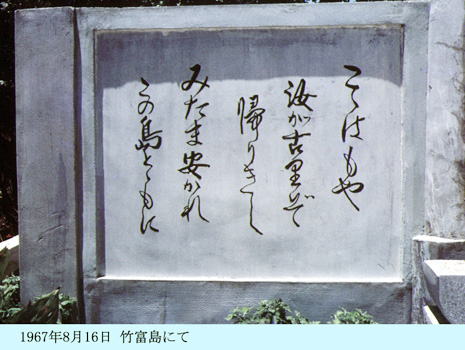 こゝはもや
汝が古里ぞ
帰りきし
みたま安かれ
この島とともに
1967年8月16日 竹富島にて